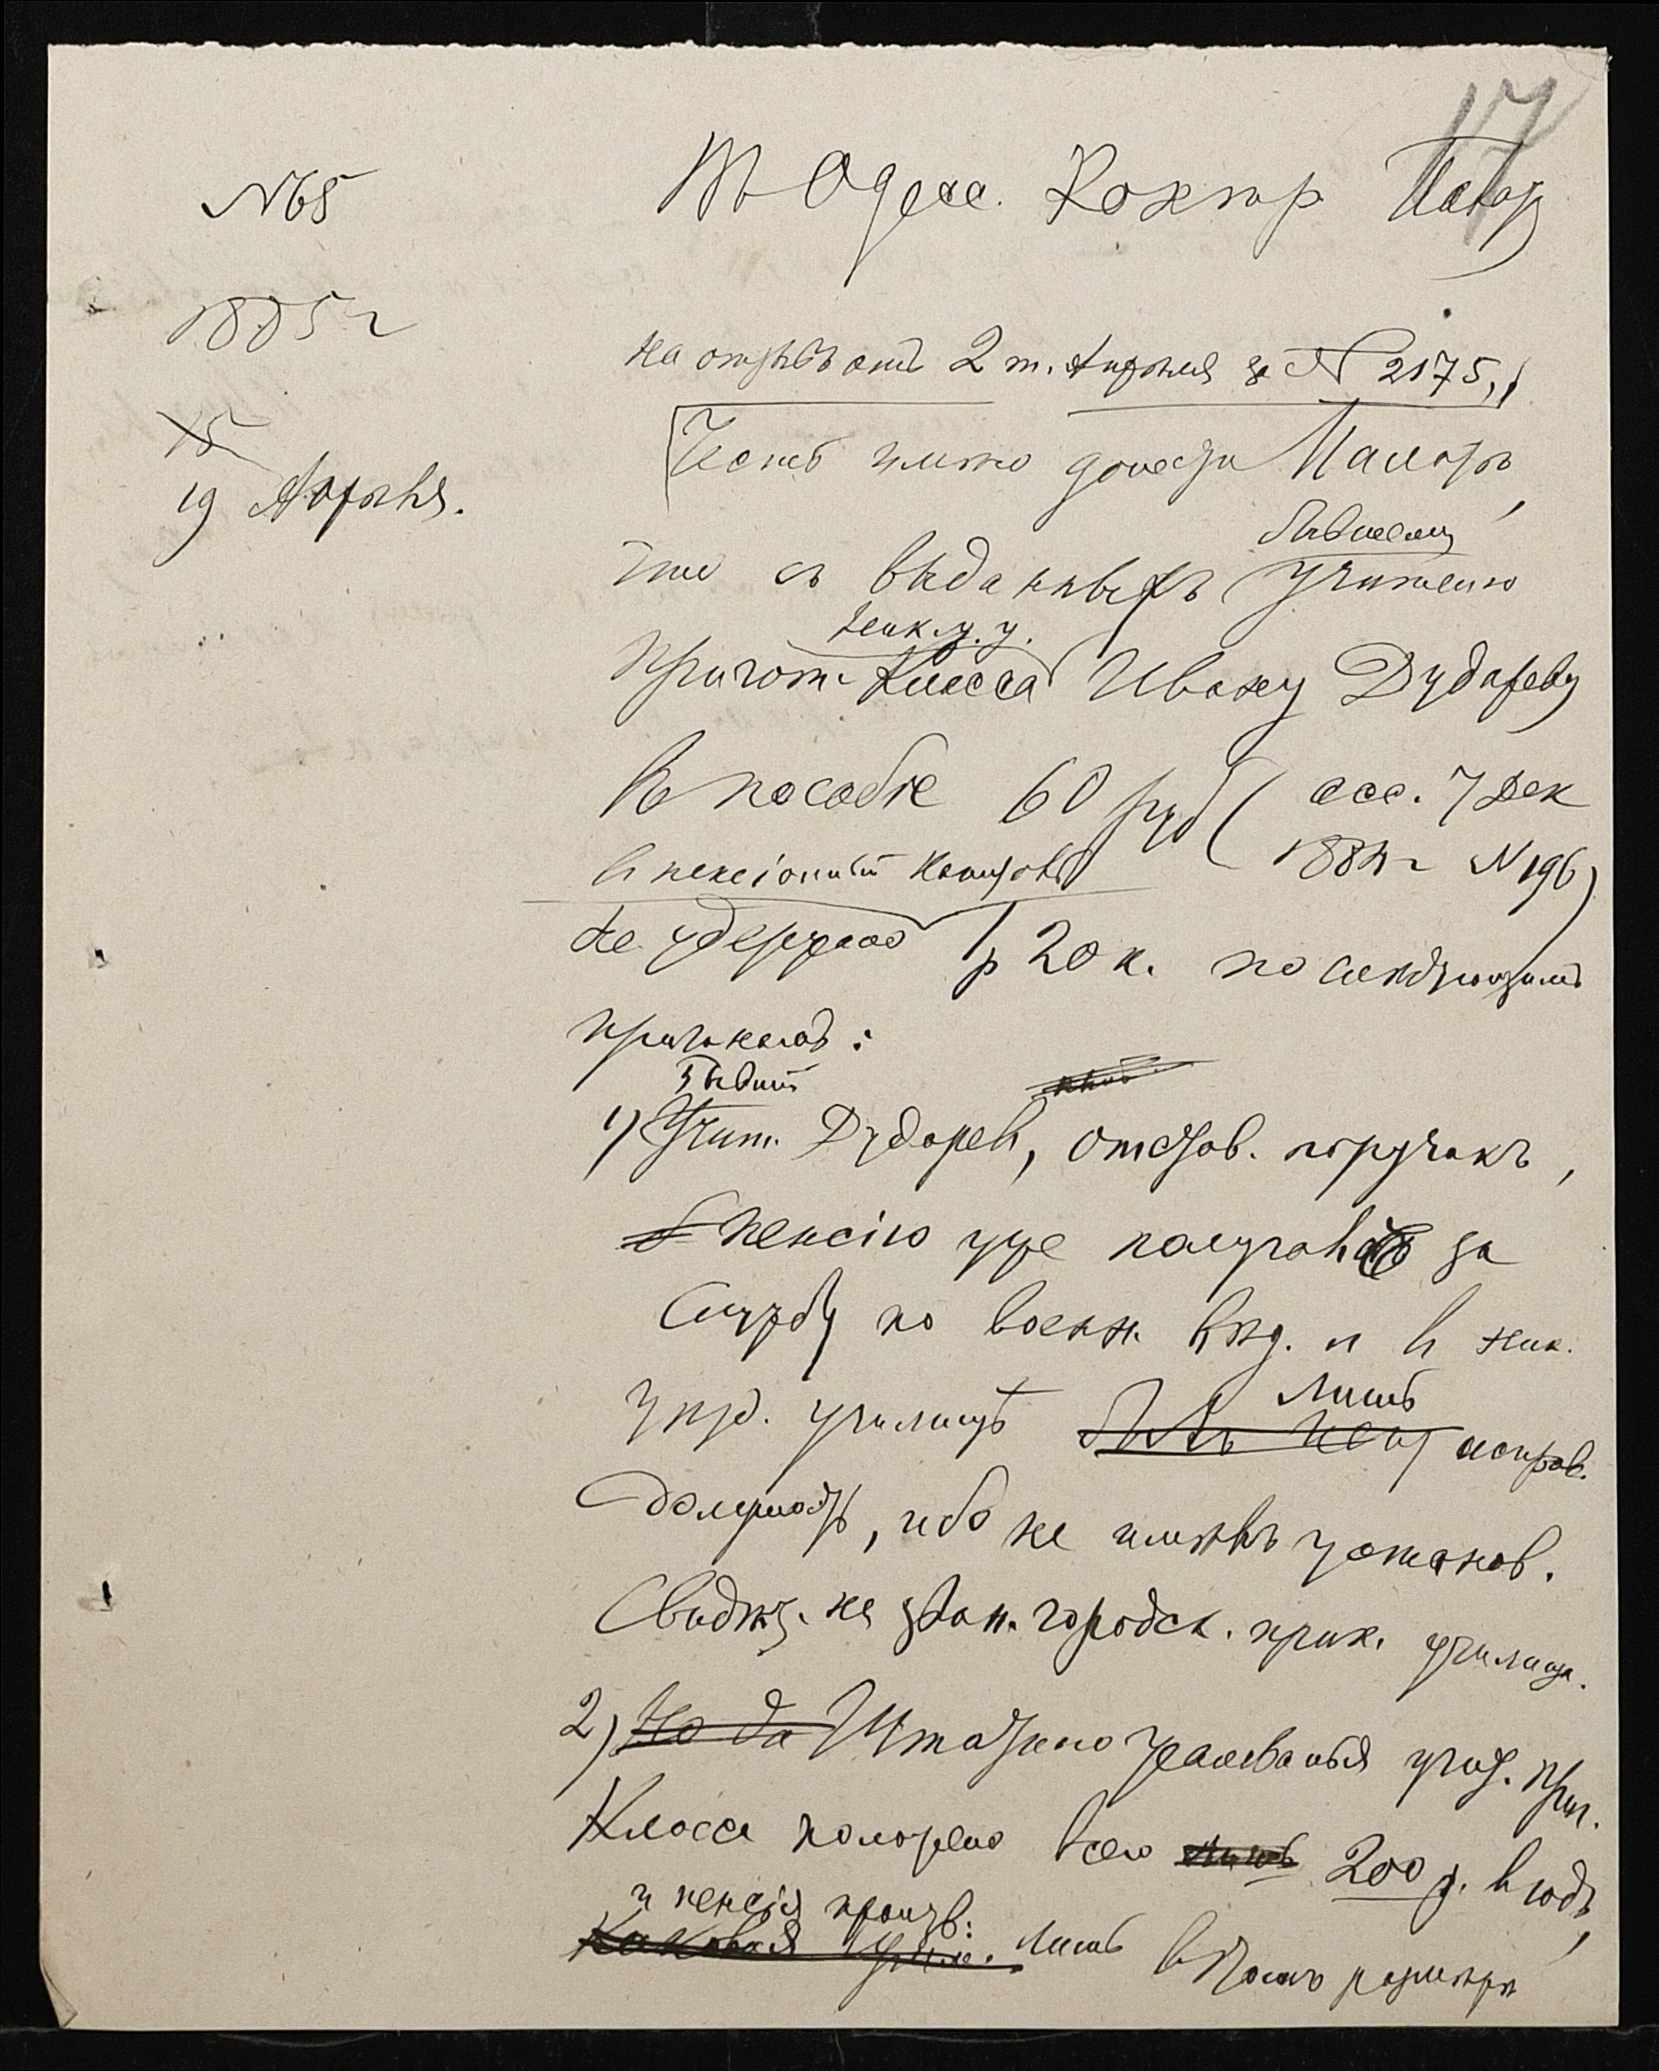 17
№ 65
1885 г
15
19 Апрѣля.
Въ Одесс. Контр. Палат
На отзывъ отъ 2 т. Апрѣля за № 2175,
Честь имѣю донести Палатѣ,
что съ выданныхъ учителю
бывшему
пригот. класса Ивану Дудареву
въ пособіе 60 руб ( асс. 7 Дек
1884 г № 196)
въ пенсіонный капиталъ
не удержано 1 р 20 к. по слѣдующимъ
причинамъ:
бывшій
1) Учит. Дударевъ, отстав. поручикъ,
пенсію уже получаетъ за
службу по воен. вѣд. и въ
уѣзд. училищѣ лишь исправ.
должность, ибо не имѣлъ установ.
Свидѣт. на зван. городск. прих. училища.
2) Но да Штатнаго жалованья учит. приг.
Класса положено всего лишь 200 р. въ годъ,
и пенсія произв:
каковая лишь въ размѣрѣ